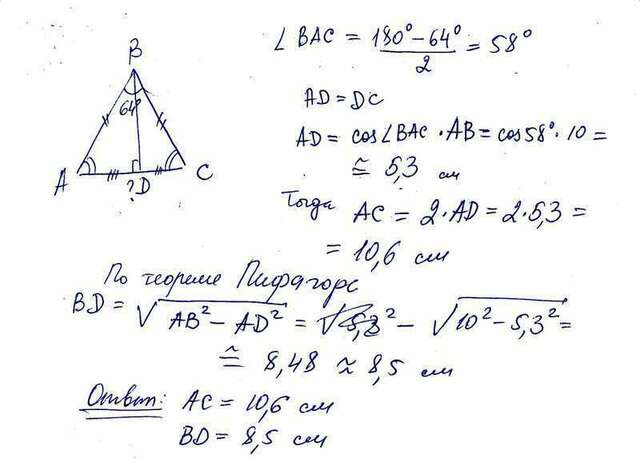 B
64°
A
C
?D
∠ BAC = (180° − 64°)/2 = 58°
AD = DC
AD = cos∠BAC · AB = cos58° · 10 =
≅ 5,3 см
Тогда AC = 2·AD = 2·5,3 =
= 10,6 см
По теореме Пифагора
BD = √(AB² − AD²) = − √(10² − 5,3²) =
≅ 8,48 ≈ 8,5 см
Ответ: AC = 10,6 см
BD = 8,5 см